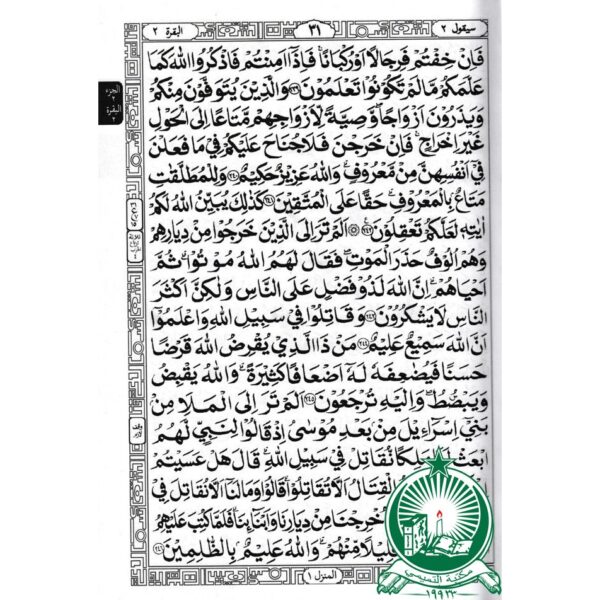 سيقول ٢
٣١
البقرة ٢
الجزء ٢
البقرة ٢
فَاِنْ خِفْتُمْ فَرِجَالًا اَوْ رُكْبَانًا ۚ فَاِذَآ اَمِنْتُمْ فَاذْكُرُوا اللّٰهَ كَمَا
عَلَّمَكُمْ مَّا لَمْ تَكُوْنُوْا تَعْلَمُوْنَ ﴿٢٣٩﴾ وَالَّذِيْنَ يُتَوَفَّوْنَ مِنْكُمْ
وَيَذَرُوْنَ اَزْوَاجًا ۖ وَّصِيَّةً لِّاَزْوَاجِهِمْ مَّتَاعًا اِلَى الْحَوْلِ
غَيْرَ اِخْرَاجٍ ۚ فَاِنْ خَرَجْنَ فَلَا جُنَاحَ عَلَيْكُمْ فِيْ مَا فَعَلْنَ
فِيْٓ اَنْفُسِهِنَّ مِنْ مَّعْرُوْفٍ ۗ وَاللّٰهُ عَزِيْزٌ حَكِيْمٌ ﴿٢٤٠﴾ وَلِلْمُطَلَّقٰتِ
مَتَاعٌ ۢ بِالْمَعْرُوْفِ ۗ حَقًّا عَلَى الْمُتَّقِيْنَ ﴿٢٤١﴾ كَذٰلِكَ يُبَيِّنُ اللّٰهُ لَكُمْ
اٰيٰتِهٖ لَعَلَّكُمْ تَعْقِلُوْنَ ﴿٢٤٢﴾ اَلَمْ تَرَ اِلَى الَّذِيْنَ خَرَجُوْا مِنْ دِيَارِهِمْ
وَهُمْ اُلُوْفٌ حَذَرَ الْمَوْتِ ۖ فَقَالَ لَهُمُ اللّٰهُ مُوْتُوْا ۗ ثُمَّ
اَحْيَاهُمْ ۗ اِنَّ اللّٰهَ لَذُوْ فَضْلٍ عَلَى النَّاسِ وَلٰكِنَّ اَكْثَرَ
النَّاسِ لَا يَشْكُرُوْنَ ﴿٢٤٣﴾ وَقَاتِلُوْا فِيْ سَبِيْلِ اللّٰهِ وَاعْلَمُوْٓا
اَنَّ اللّٰهَ سَمِيْعٌ عَلِيْمٌ ﴿٢٤٤﴾ مَنْ ذَا الَّذِيْ يُقْرِضُ اللّٰهَ قَرْضًا
حَسَنًا فَيُضٰعِفَهٗ لَهٗٓ اَضْعَافًا كَثِيْرَةً ۗ وَاللّٰهُ يَقْبِضُ
وَيَبْصُۜطُ ۖ وَاِلَيْهِ تُرْجَعُوْنَ ﴿٢٤٥﴾ اَلَمْ تَرَ اِلَى الْمَلَاِ مِنْۢ
بَنِيْٓ اِسْرَآءِيْلَ مِنْۢ بَعْدِ مُوْسٰى ۘ اِذْ قَالُوْا لِنَبِيٍّ لَّهُمُ
ابْعَثْ مَلِكًا نُّقَاتِلْ فِيْ سَبِيْلِ اللّٰهِ ۗ قَالَ هَلْ عَسَيْتُمْ
الْقِتَالُ اَلَّا تُقَاتِلُوْا ۗ قَالُوْا وَمَا لَنَآ اَلَّا نُقَاتِلَ فِيْ
اُخْرِجْنَا مِنْ دِيَارِنَا وَاَبْنَآئِنَا ۗ فَلَمَّا كُتِبَ عَلَيْهِمُ
قَلِيْلًا مِّنْهُمْ ۗ وَاللّٰهُ عَلِيْمٌۢ بِالظّٰلِمِيْنَ ﴿٢٤٦﴾
المنزل ١
مكتبة التميمي
١٩٩٣